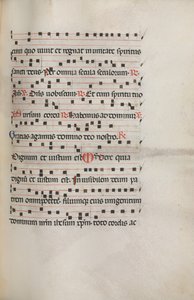 cum quo vivit et regnat in unitate spiritus
sancti deus Per omnia secula seculorum. R.
Dominus vobiscum. R. Et cum spiritu tuo
Habemus ad dominum R.
Gratias agamus domino deo nostro. R.
Dignum et iustum est. Vere quia
dignum et iustum est Invisibilem deum pa
trem omnipotentem filiumque eius unigenitum
dominum nostrum iesum xpm toto cordis ac